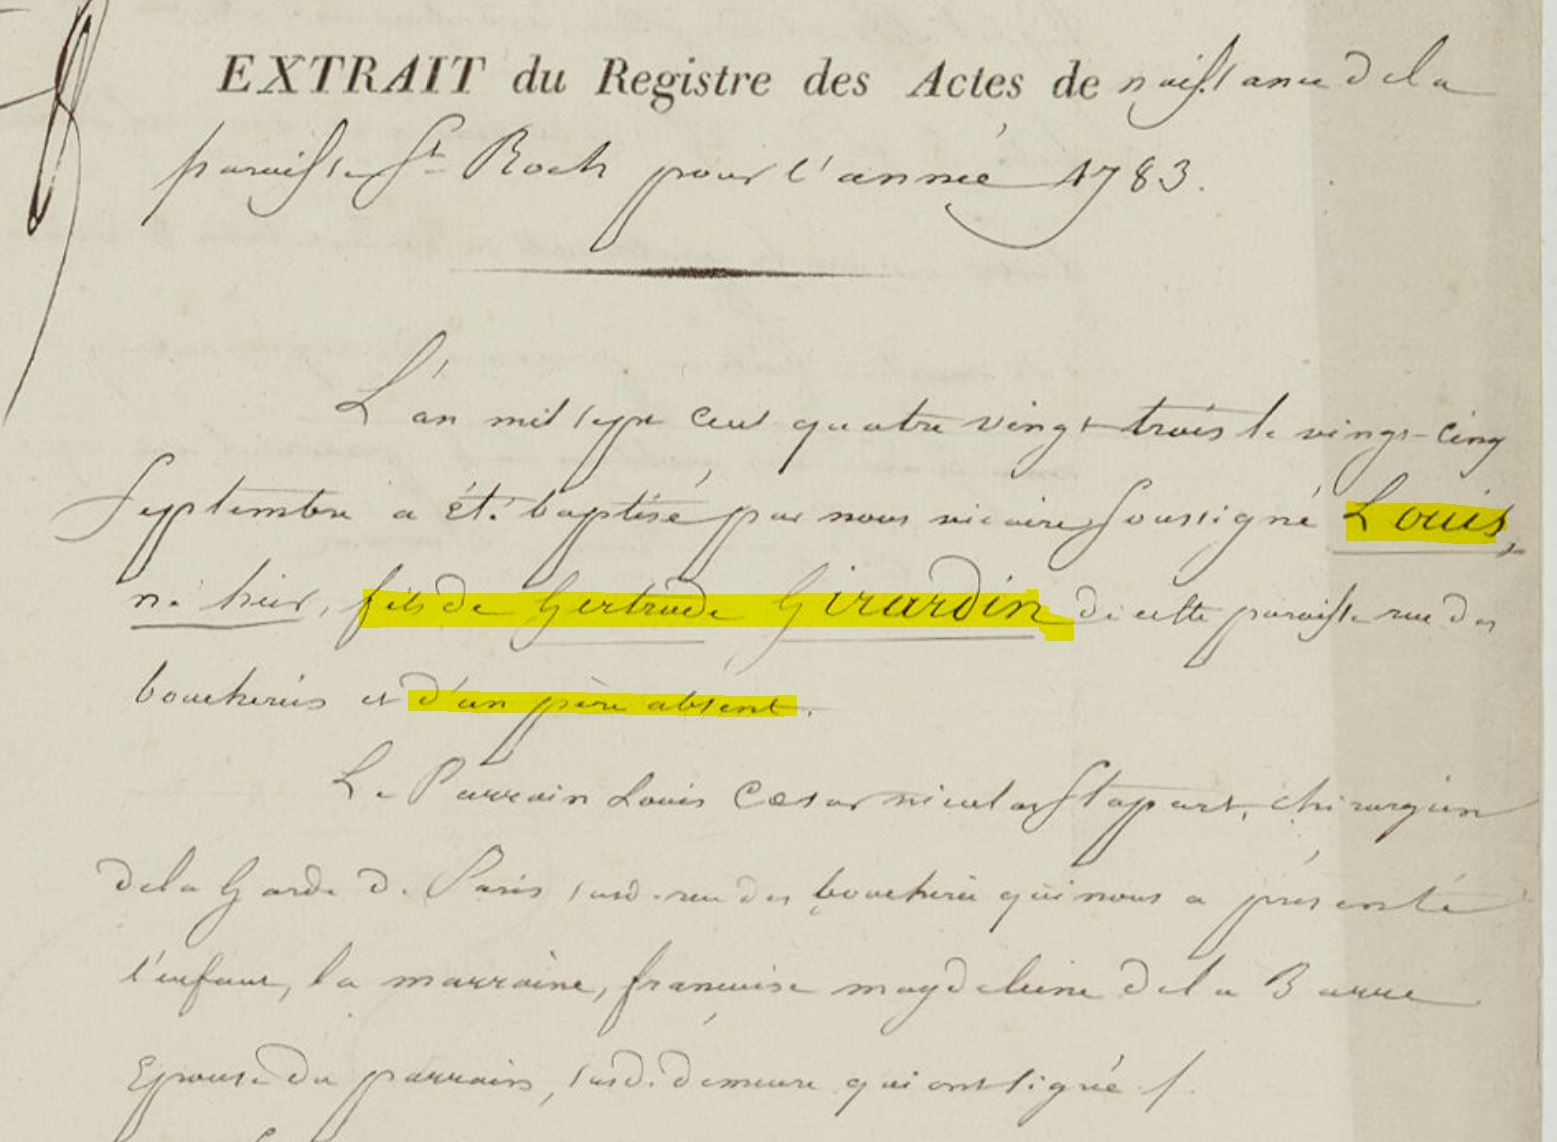 EXTRAIT du Registre des Actes de naissance dela
paroisse St Roch pour l'année 1783.
L'an mil sept cent quatre vingt trois le vingt-cinq
Septembre a été baptisé par nous vicaire soussigné Louis,
né hier, fils de Gertrude Girardin de cette paroisse rue des
boucheries et d'un père absent.
Le Parrain Louis Cæsar nicolas Stapart, chirurgien
dela Garde de Paris susd. rue des boucheries qui nous a présenté
l'enfant, la marraine, francoise magdeleine dela Barre
Epouse du parrain, susd. demeure qui ont signé /.